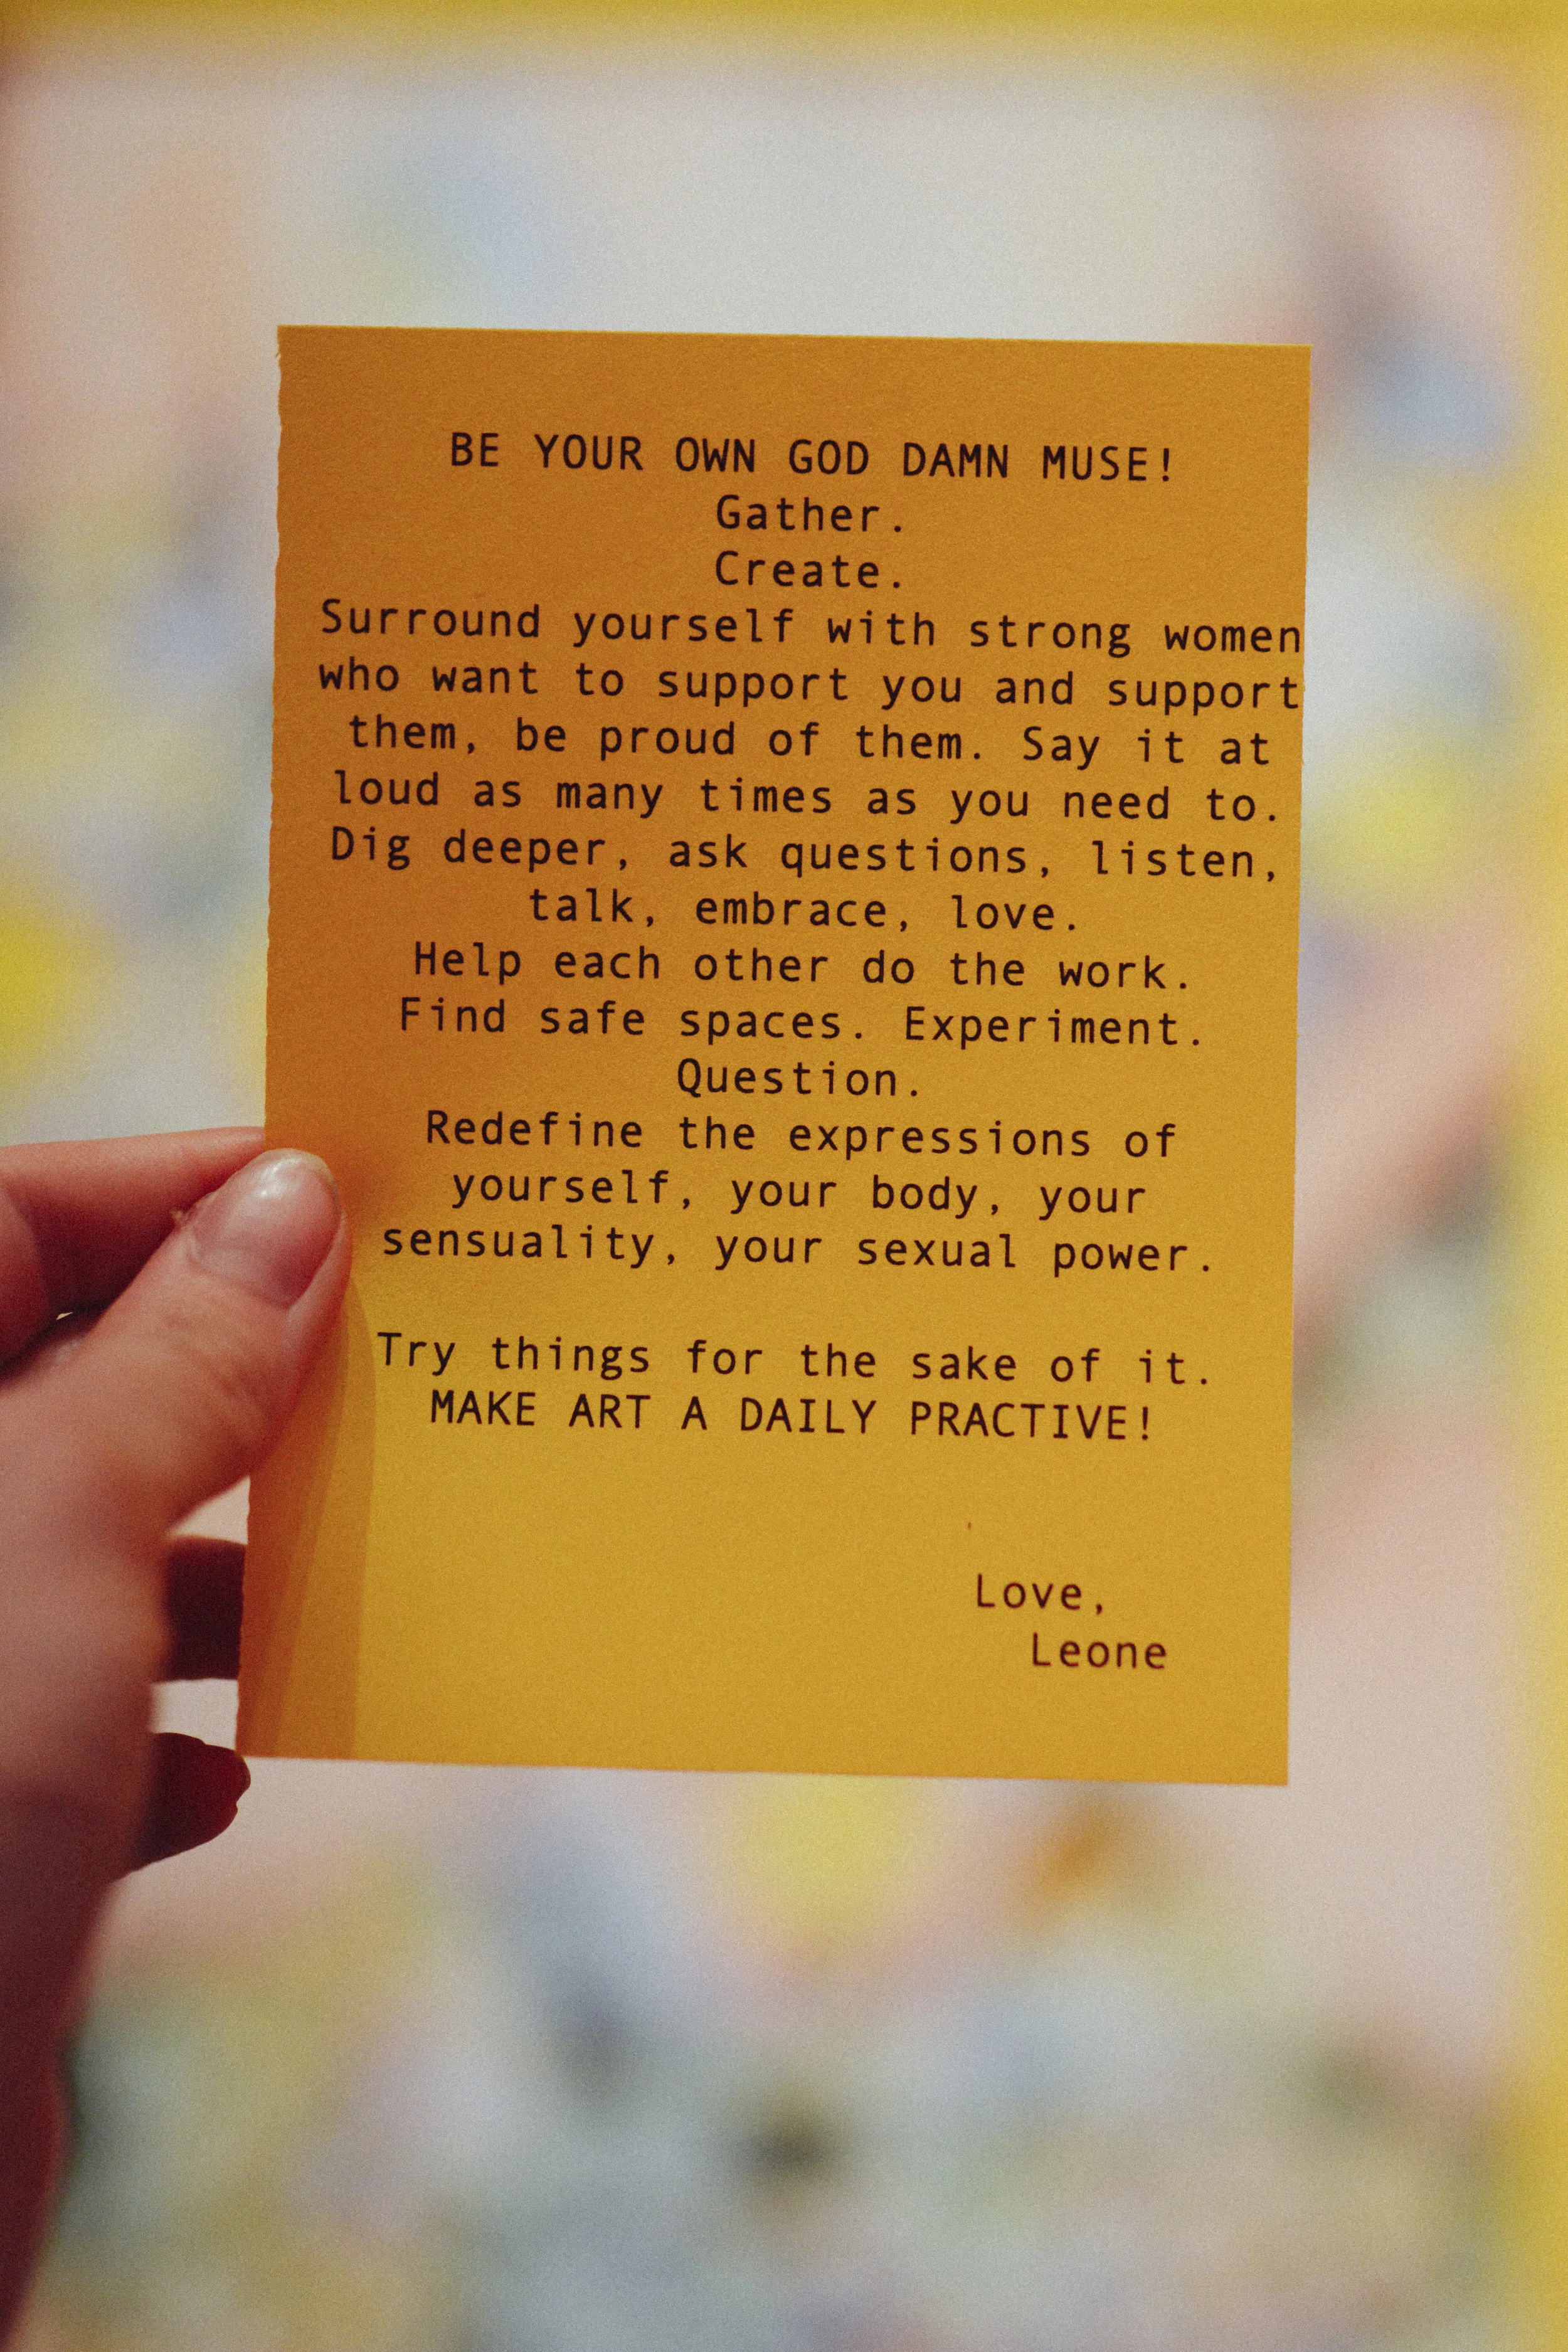 BE YOUR OWN GOD DAMN MUSE!
Gather.
Create.
Surround yourself with strong women
who want to support you and support
them, be proud of them. Say it at
loud as many times as you need to.
Dig deeper, ask questions, listen,
talk, embrace, love.
Help each other do the work.
Find safe spaces. Experiment.
Question.
Redefine the expressions of
yourself, your body, your
sensuality, your sexual power.
Try things for the sake of it.
MAKE ART A DAILY PRACTIVE!
Love,
Leone